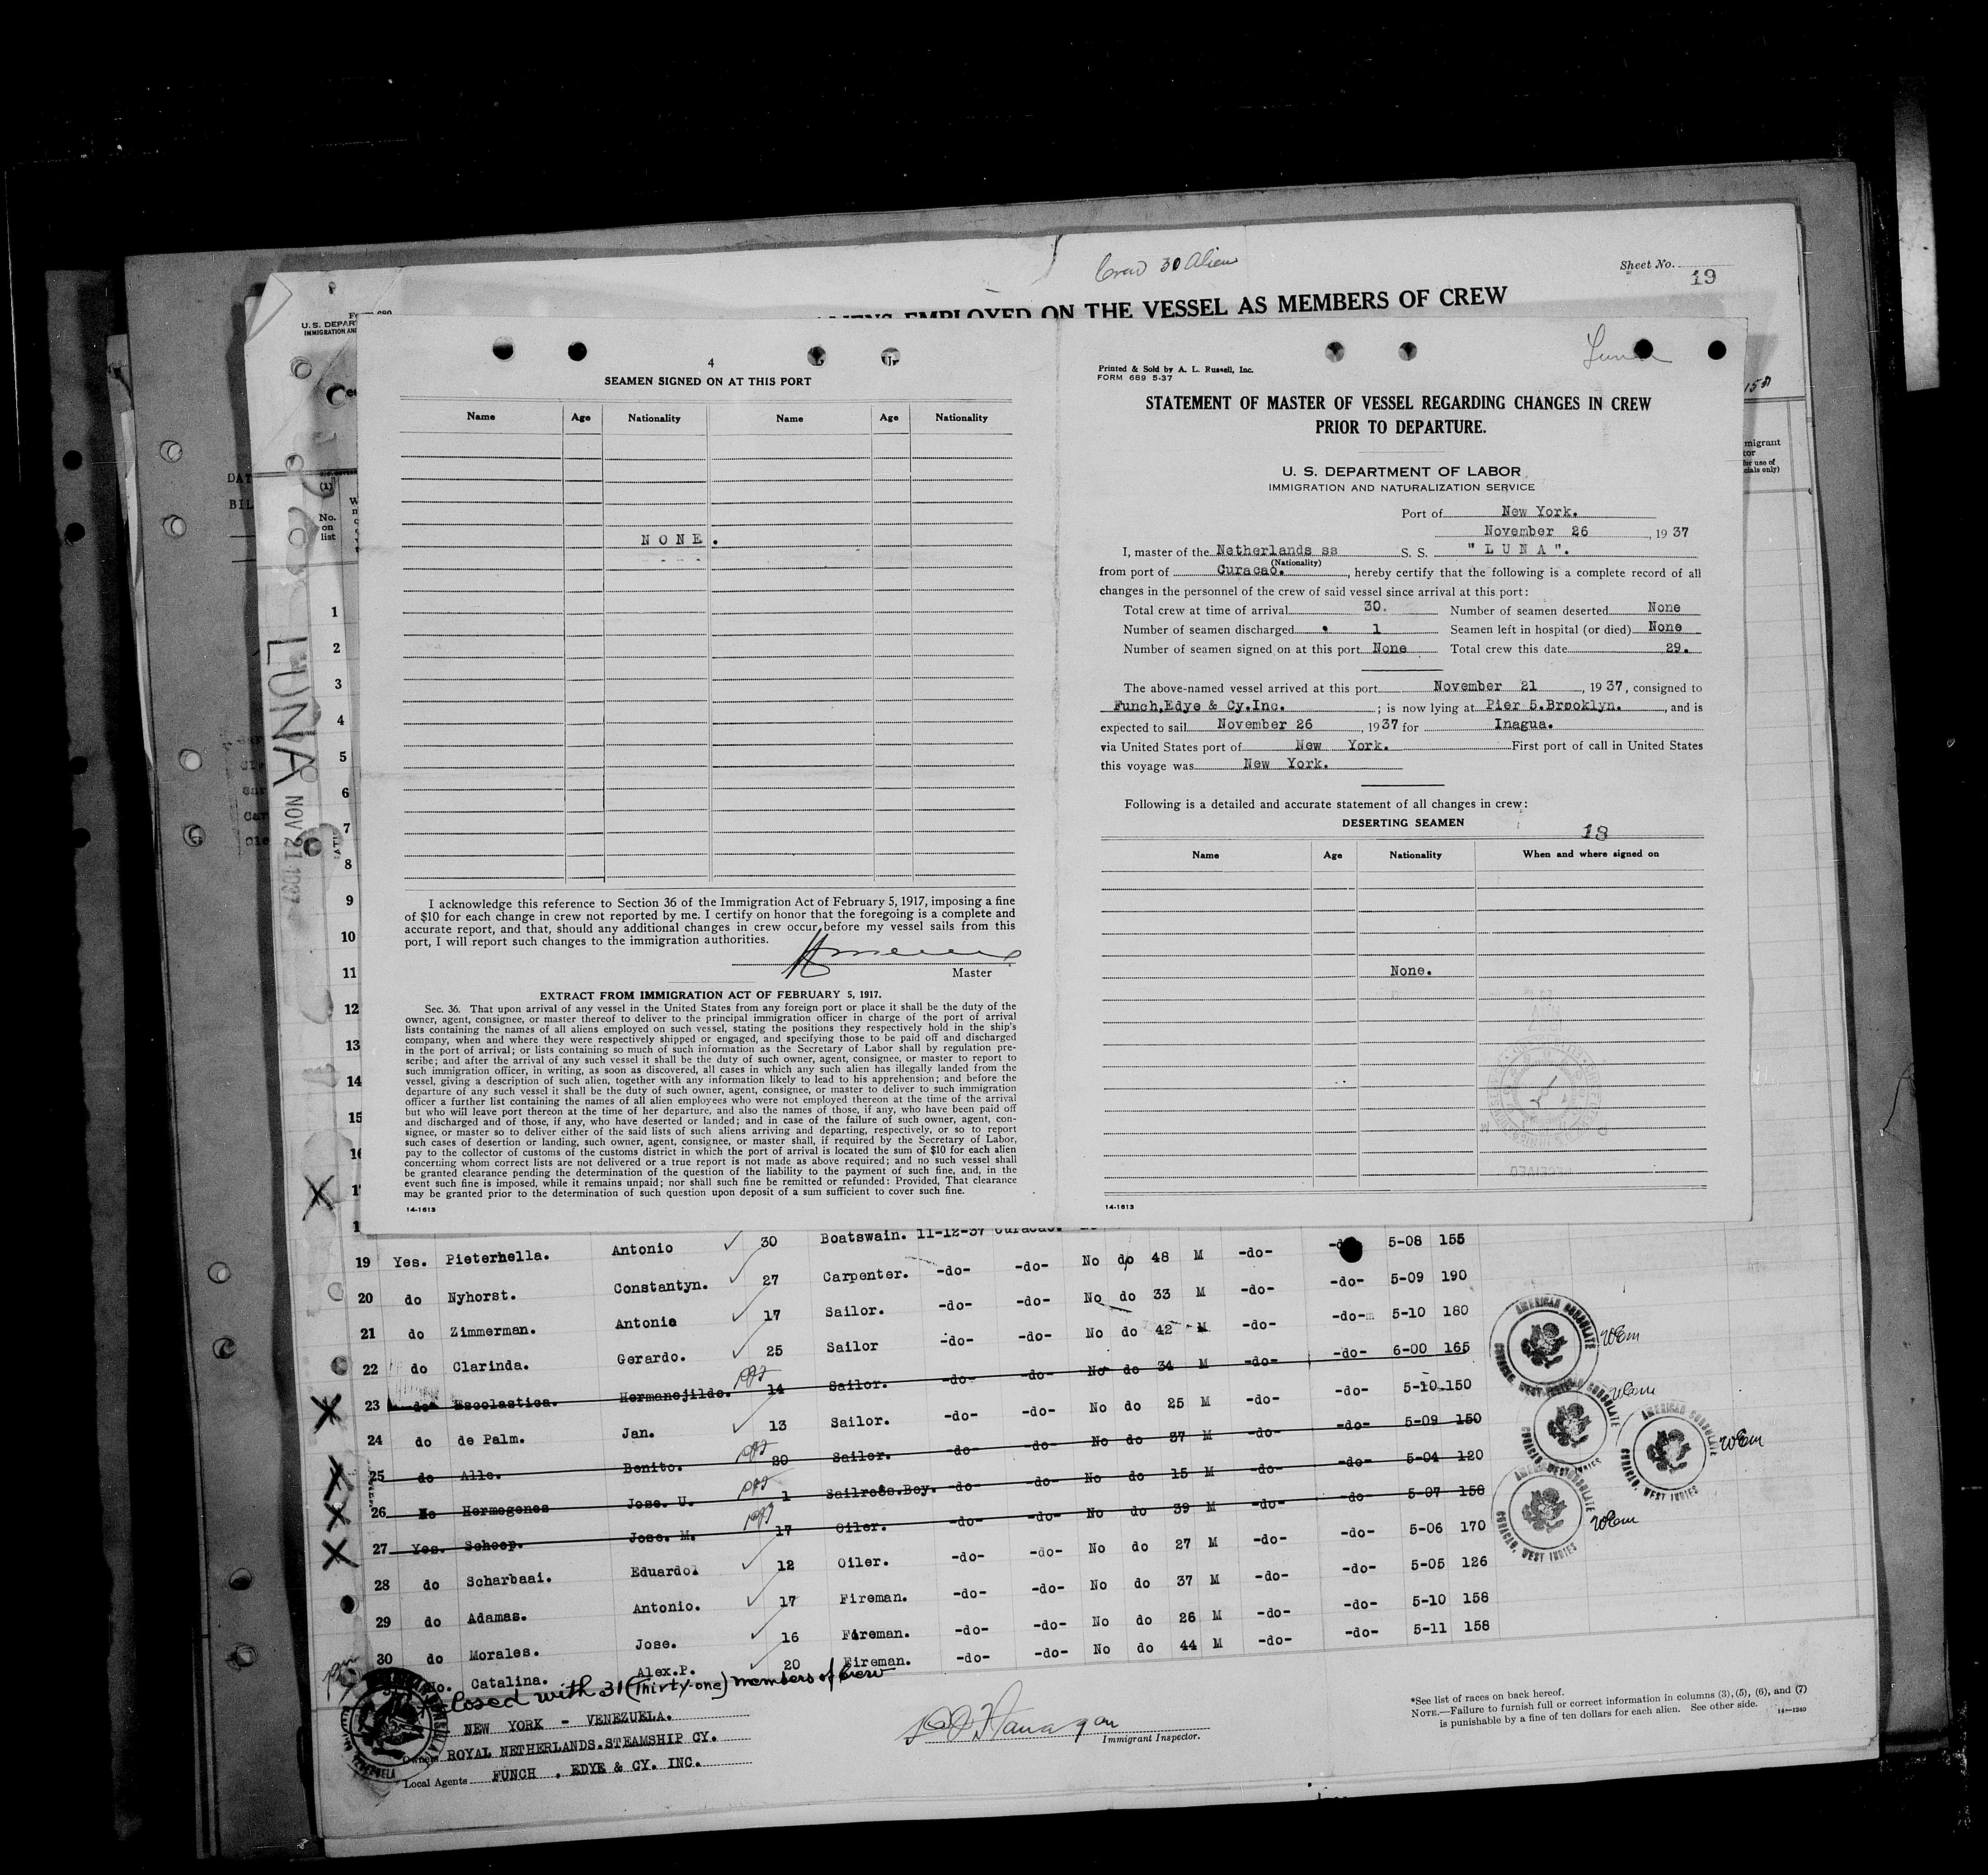 Crew 30 Alien
Sheet No.
19
ALIENS EMPLOYED ON THE VESSEL AS MEMBERS OF CREW
Form 689
U. S. DEPAR
IMMIGRATION AN
DAT
BIL
(1)
No.
on
list
migrant
tor
for use of
cials only)
LUNA
NOV 21 1937
1
2
3
4
5
6
7
8
9
10
11
12
13
14
15
4
SEAMEN SIGNED ON AT THIS PORT
Name Age Nationality Name Age Nationality
NONE.
I acknowledge this reference to Section 36 of the Immigration Act of February 5, 1917, imposing a fine
of $10 for each change in crew not reported by me. I certify on honor that the foregoing is a complete and
accurate report, and that, should any additional changes in crew occur before my vessel sails from this
port, I will report such changes to the immigration authorities.
Master
EXTRACT FROM IMMIGRATION ACT OF FEBRUARY 5, 1917.
Sec. 36. That upon arrival of any vessel in the United States from any foreign port or place it shall be the duty of the
owner, agent, consignee, or master thereof to deliver to the principal immigration officer in charge of the port of arrival
lists containing the names of all aliens employed on such vessel, stating the positions they respectively hold in the ship's
company, when and where they were respectively shipped or engaged, and specifying those to be paid off and discharged
in the port of arrival; or lists containing so much of such information as the Secretary of Labor shall by regulation pre-
scribe; and after the arrival of any such vessel it shall be the duty of such owner, agent, consignee, or master to report to
such immigration officer, in writing, as soon as discovered, all cases in which any such alien has illegally landed from the
vessel, giving a description of such alien, together with any information likely to lead to his apprehension; and before the
departure of any such vessel it shall be the duty of such owner, agent, consignee, or master to deliver to such immigration
officer a further list containing the names of all alien employees who were not employed thereon at the time of the arrival
but who will leave port thereon at the time of her departure, and also the names of those, if any, who have been paid off
and discharged and of those, if any, who have deserted or landed; and in case of the failure of such owner, agent, con-
signee, or master so to deliver either of the said lists of such aliens arriving and departing, respectively, or so to report
such cases of desertion or landing, such owner, agent, consignee, or master shall, if required by the Secretary of Labor,
pay to the collector of customs of the customs district in which the port of arrival is located the sum of $10 for each alien
concerning whom correct lists are not delivered or a true report is not made as above required; and no such vessel shall
be granted clearance pending the determination of the question of the liability to the payment of such fine, and, in the
event such fine is imposed, while it remains unpaid; nor shall such fine be remitted or refunded: Provided, That clearance
may be granted prior to the determination of such question upon deposit of a sum sufficient to cover such fine.
14-1613
Luna
Printed & Sold by A. L. Russell, Inc.
FORM 689 5-37
STATEMENT OF MASTER OF VESSEL REGARDING CHANGES IN CREW
PRIOR TO DEPARTURE.
U. S. DEPARTMENT OF LABOR
IMMIGRATION AND NATURALIZATION SERVICE
Port of New York.
November 26, 1937
I, master of the Netherlands ss S. S. "LUNA".
(Nationality)
from port of Curacao., hereby certify that the following is a complete record of all
changes in the personnel of the crew of said vessel since arrival at this port:
Total crew at time of arrival 30. Number of seamen deserted None
Number of seamen discharged 1 Seamen left in hospital (or died) None
Number of seamen signed on at this port None Total crew this date 29.
The above-named vessel arrived at this port November 21, 1937, consigned to
Funch,Edye & Cy.Inc.; is now lying at Pier 5.Brooklyn., and is
expected to sail November 26, 1937 for Inagua.
via United States port of New York. First port of call in United States
this voyage was New York.
Following is a detailed and accurate statement of all changes in crew:
DESERTING SEAMEN
18
Name Age Nationality When and where signed on
None.
14-1613
19 Yes. Pieterhella. Antonio 30 Boatswain. 11-12-37 Curacao. No do 48 M -do- -do- 5-08 155
20 do Nyhorst. Constantyn. 27 Carpenter. -do- -do- No do 33 M -do- -do- 5-09 190
21 do Zimmerman. Antonie 17 Sailor. -do- -do- No do 42 M -do- -do- 5-10 180
22 do Clarinda. Gerardo. 25 Sailor -do- -do- No do 34 M -do- -do- 6-00 165
23 do Escolastica. Hermanejildo. 14 Sailor. -do- -do- No do 25 M -do- -do- 5-10 150
24 do de Palm. Jan. 13 Sailor. -do- -do- No do 37 M -do- -do- 5-09 150
25 do Alle. Benito. 20 Sailor. -do- -do- No do 15 M -do- -do- 5-04 120
26 No Hermogenes Jose. U. 1 Sailross.Boy. -do- -do- No do 39 M -do- -do- 5-07 158
27 Yes. Schoop. Jose. M. 17 Oiler. -do- -do- No do 27 M -do- -do- 5-06 170
28 do Scharbaai. Eduardo 12 Oiler. -do- -do- No do 37 M -do- -do- 5-05 126
29 do Adamas. Antonio. 17 Fireman. -do- -do- No do 26 M -do- -do- 5-10 158
30 do Morales. Jose. 16 Fireman. -do- -do- No do 44 M -do- -do- 5-11 158
Catalina. Alex.P. 20 Fireman.
Closed with 31 (Thirty-one) members of Crew
NEW YORK - VENEZUELA.
Owners ROYAL NETHERLANDS.STEAMSHIP CY.
Local Agents FUNCH, EDYE & CY. INC.
Immigrant Inspector.
AMERICAN CONSULATE
CURACAO, WEST INDIES
AMERICAN CONSULATE
CURACAO, WEST INDIES
AMERICAN CONSULATE
CURACAO, WEST INDIES
AMERICAN CONSULATE
CURACAO, WEST INDIES
*See list of races on back hereof.
NOTE.—Failure to furnish full or correct information in columns (3), (5), (6), and (7)
is punishable by a fine of ten dollars for each alien. See other side. 14-1240